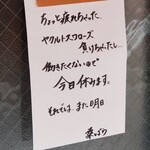 ちょっと疲れちゃった…
ヤクルトスワローズ
負けちゃったし…
働きたくないので
今日休みます。
それでは、また明日